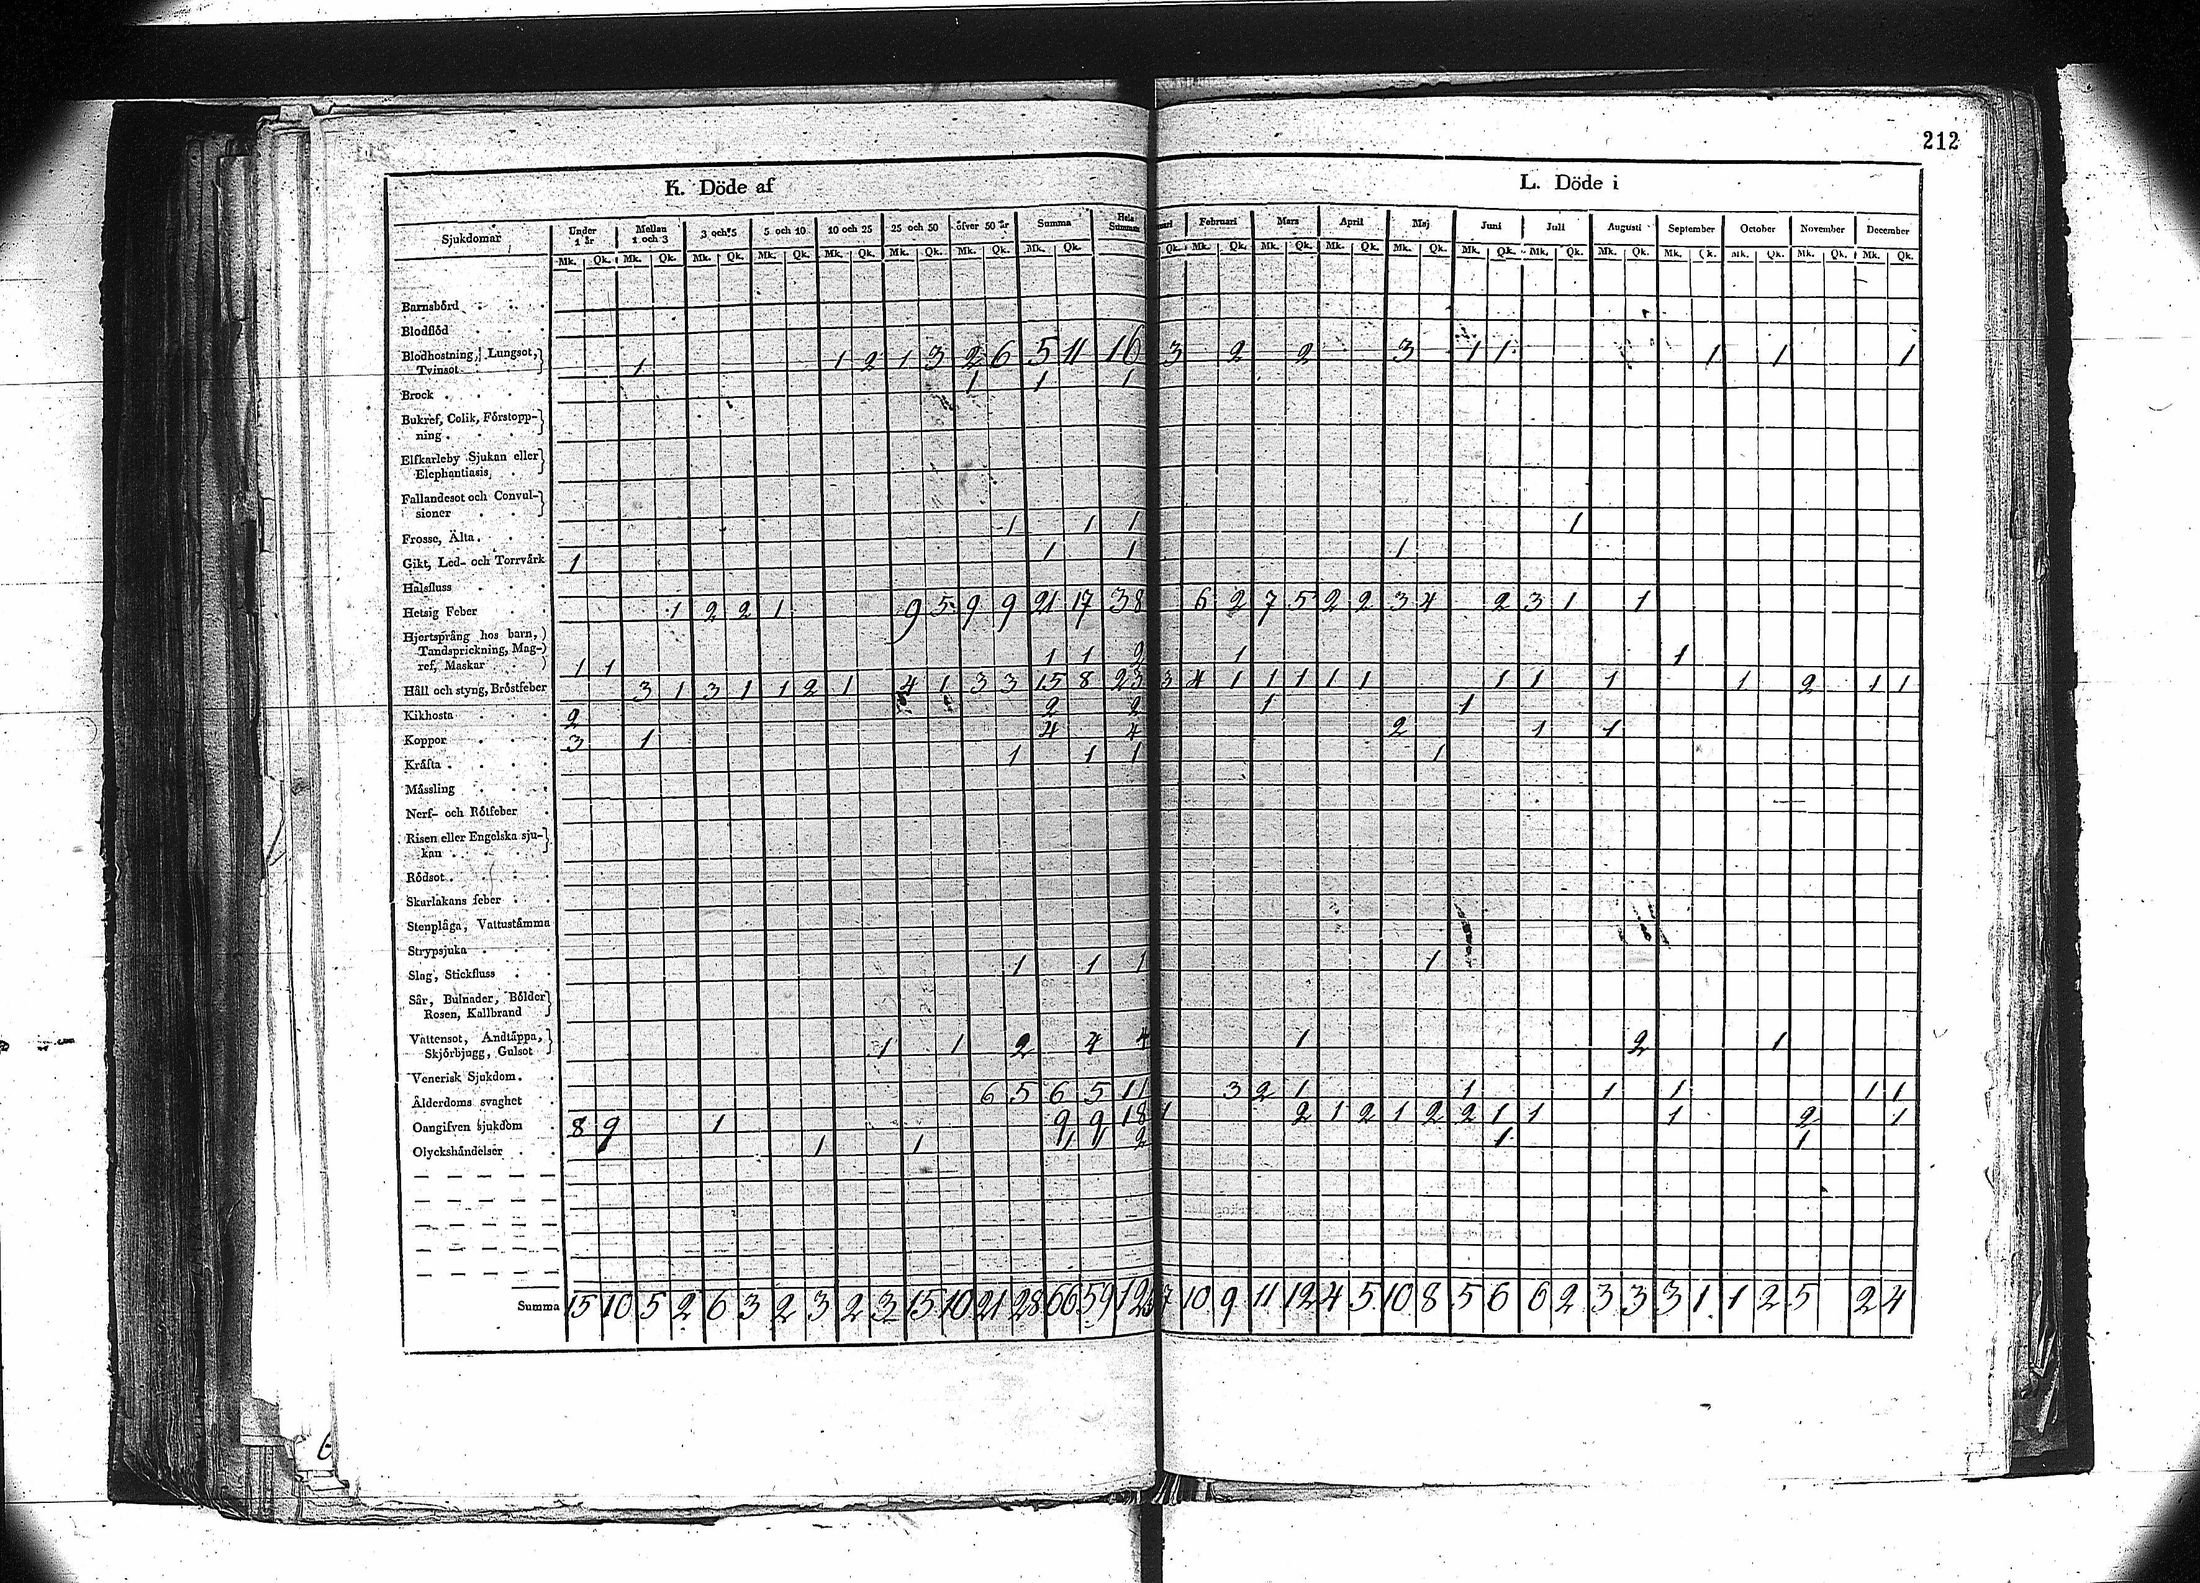 212
K. Döde af
L. Döde i
Sjukdomar Under 1 år Mellan 1 och 3 3 och 5 5 och 10 10 och 25 25 och 50 öfver 50 år Summa Hela Summan
Februari Mars April Maj Juni Juli Augusti September October November December
Mk. Qk. Mk. Qk. Mk. Qk. Mk. Qk. Mk. Qk. Mk. Qk. Mk. Qk. Mk. Qk.
Qk. Mk. Qk. Mk. Qk. Mk. Qk. Mk. Qk. Mk. Qk. Mk. Qk. Mk. Qk. Mk. Qk. Mk. Qk. Mk. Qk. Mk. Qk.
Barnsbörd
Blodflöd
Blodhostning, Lungsot,
Tvinsot 1 1 2 1 3 2 6 5 11 16 3 2 2 3 1 1 1 1 1
Brock 1 1 1
Bukref, Colik, Förstopp-
ning
Elfkarleby Sjukan eller
Elephantiasis
Fallandesot och Convul-
sioner
Frosse, Älta 1 1 1 1
Gikt, Led- och Torrvärk 1 1 1 1
Halsfluss
Hetsig Feber 1 2 2 1 9 5 9 9 21 17 38 6 2 7 5 2 2 3 4 2 3 1 1
Hjertsprång hos barn,
Tandsprickning, Mag-
ref, Maskar 1 1 1 1 2 1 1
Håll och styng, Bröstfeber 3 1 3 1 1 2 1 4 1 3 3 15 8 23 3 4 1 1 1 1 1 1 1 1 1 2 1 1
Kikhosta 2 2 2 1 1
Koppor 3 1 4 4 2 1 1
Kräfta 1 1 1 1
Mässling
Nerf- och Rötfeber
Risen eller Engelska sju-
kan
Rödsot
Skarlakans feber
Stenplåga, Vattustämma
Strypsjuka
Slag, Stickfluss 1 1 1 1
Sår, Bulnader, Bölder
Rosen, Kallbrand
Vattensot, Andtäppa,
Skjörbjugg, Gulsot 1 1 2 4 4 1 2 1
Venerisk Sjukdom
Ålderdoms svaghet 6 5 6 5 11 3 2 1 1 1 1 1 1
Oangifven sjukdom 8 9 1 9 9 18 1 2 1 2 1 2 2 1 1 1 2 1
Olyckshändelser 1 1 1 1 2 1 1
Summa 15 10 5 2 6 3 2 3 2 3 15 10 21 28 66 59 12 7 10 9 11 12 4 5 10 8 5 6 6 2 3 3 3 1 1 2 5 2 4
6